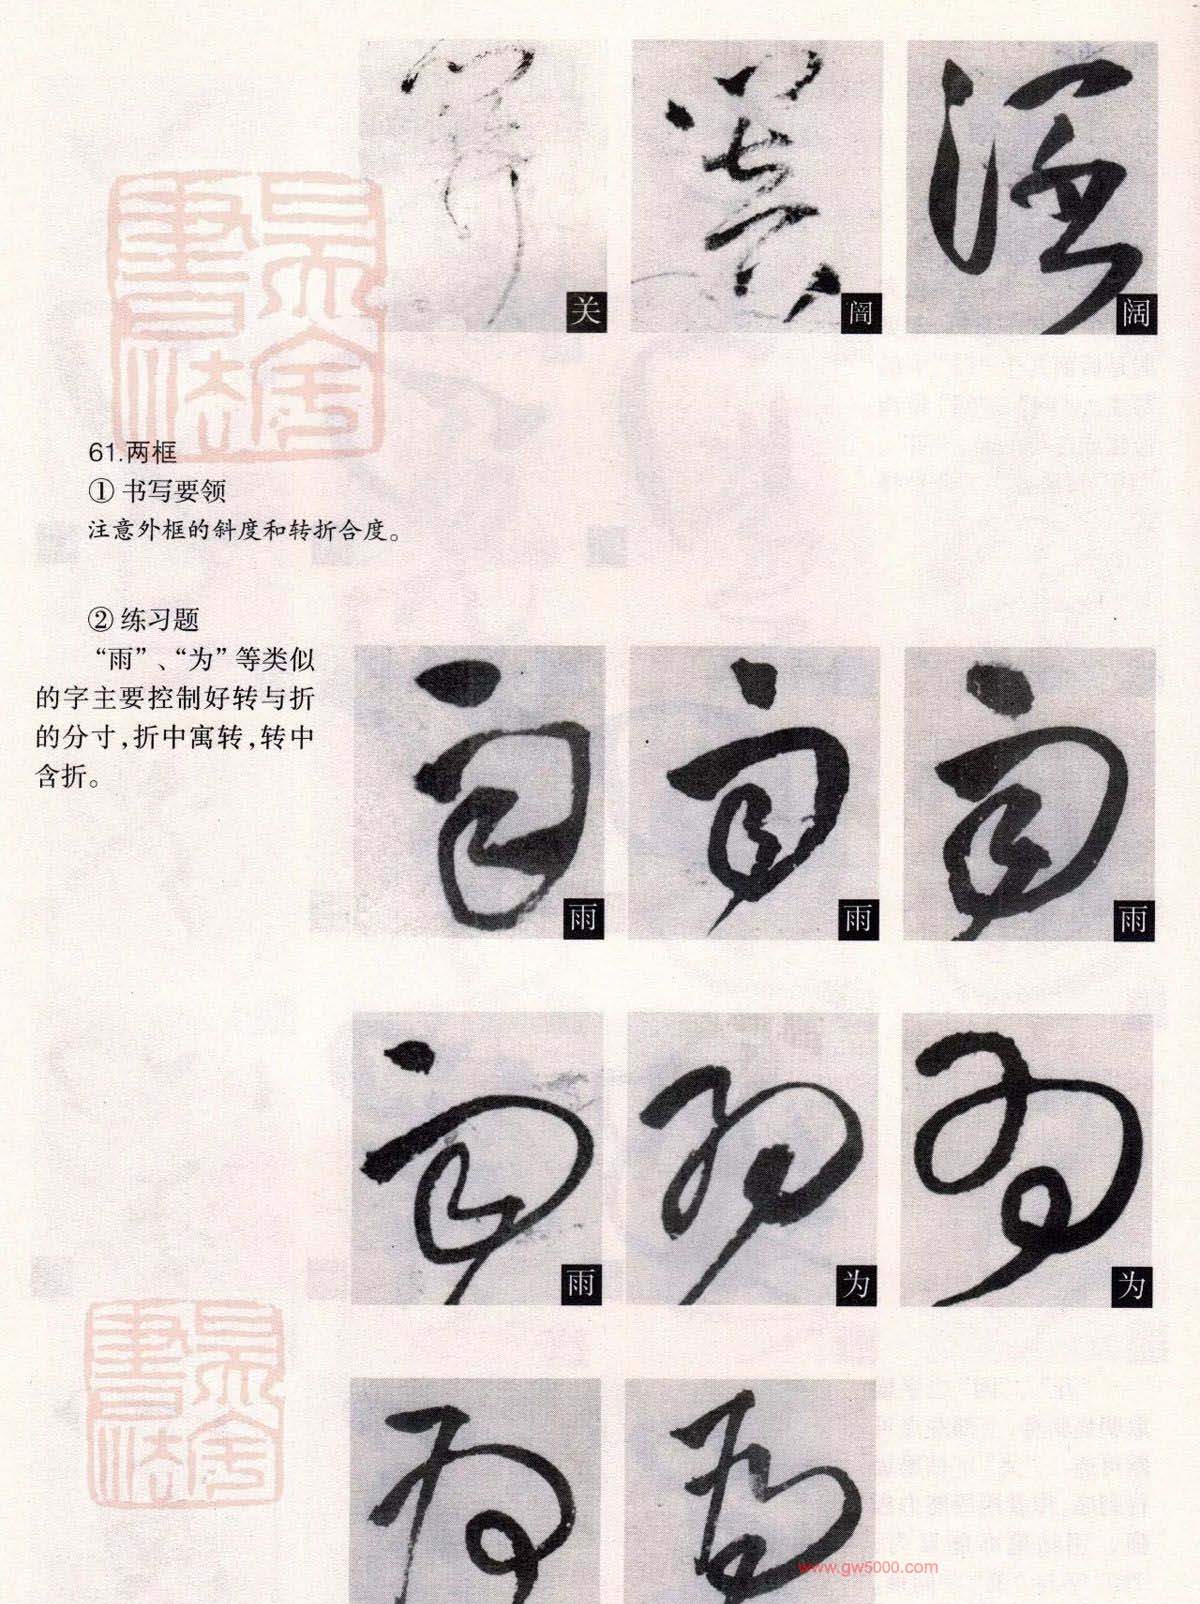 关
阇
阔
61.两框
① 书写要领
注意外框的斜度和转折合度。
② 练习题
“雨”、“为”等类似
的字主要控制好转与折
的分寸,折中寓转,转中
含折。
雨
雨
雨
雨
为
为
www.gw5000.com